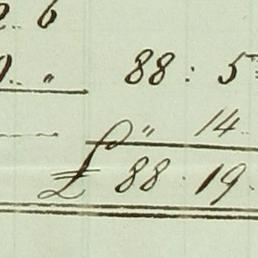 2.. 6
0.. " 88 : 5
" 14
£ 88 · 19